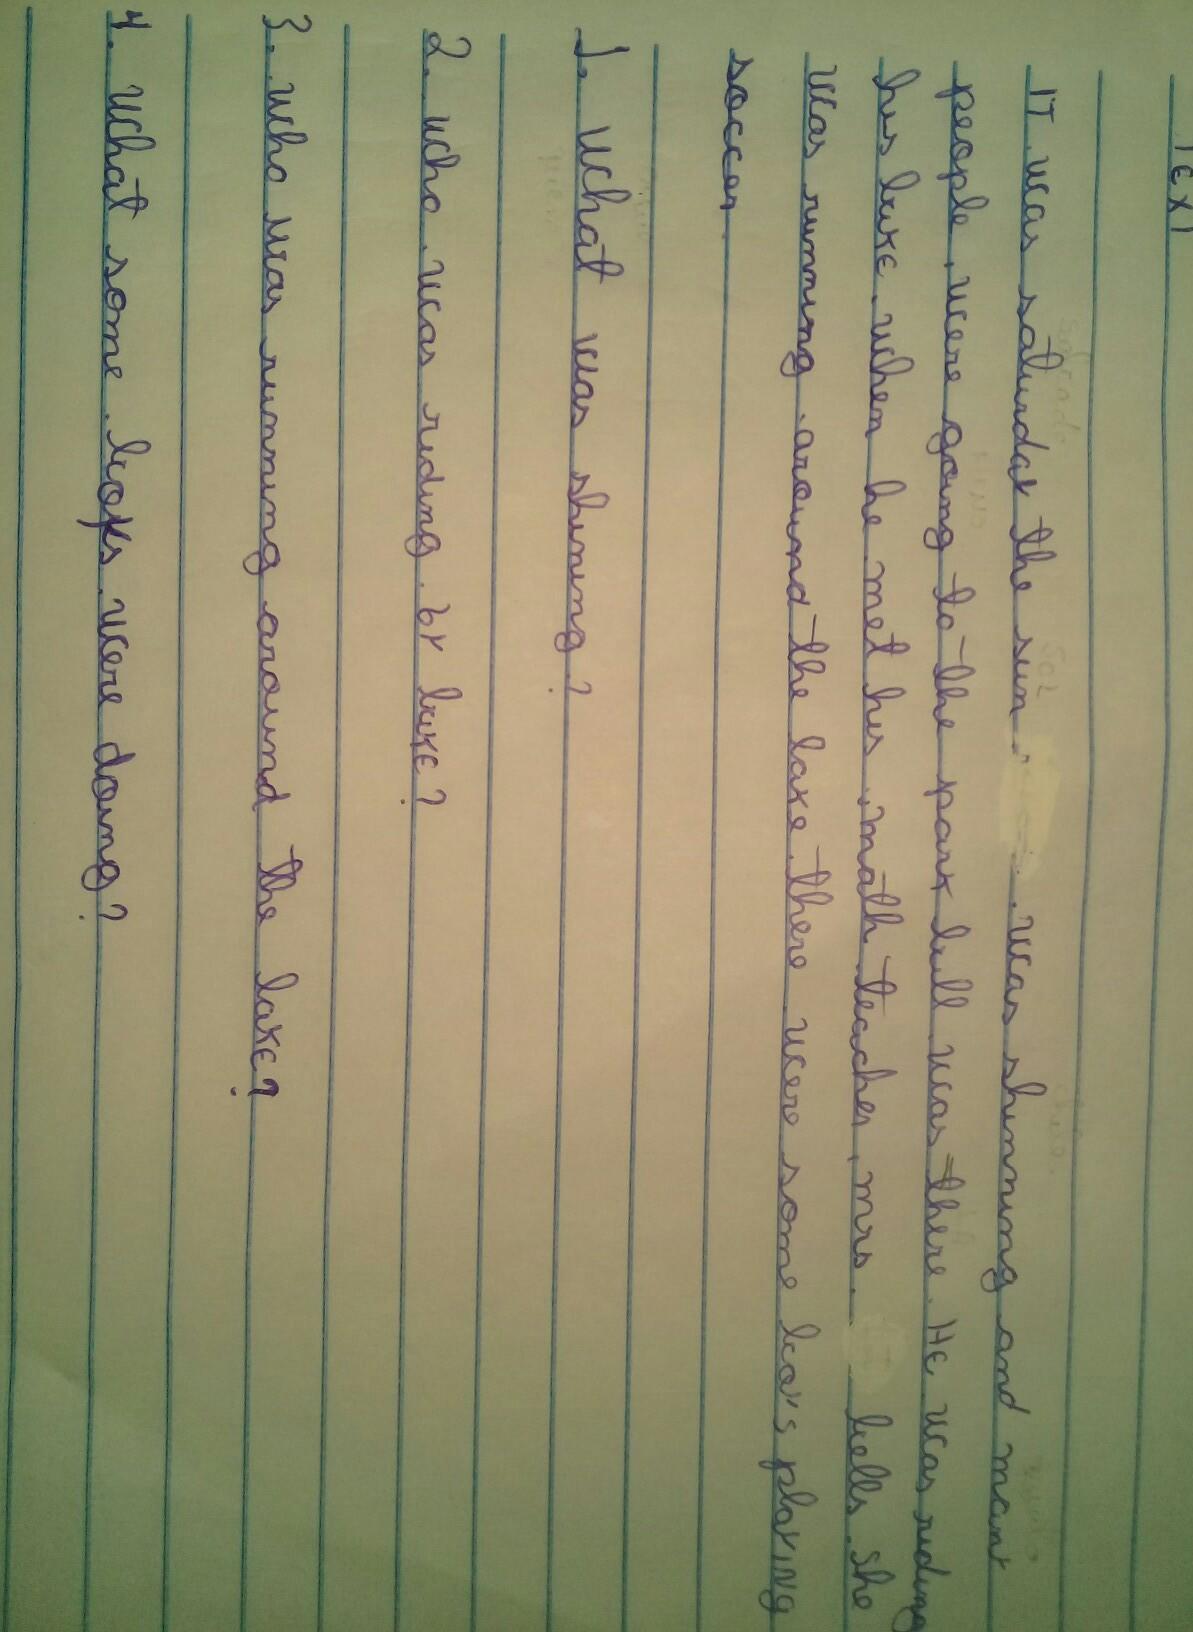 TEXT
IT was saturday the sun was shinning and many
people were going to the park bill was there. He was riding
his bike when he met his math teacher, mrs. bells. She
was running around the lake there were some boy's playing
soccer.
1. What was shining?
2. who was riding by bike?
3. who was running around the lake?
4. What some boys were doing?